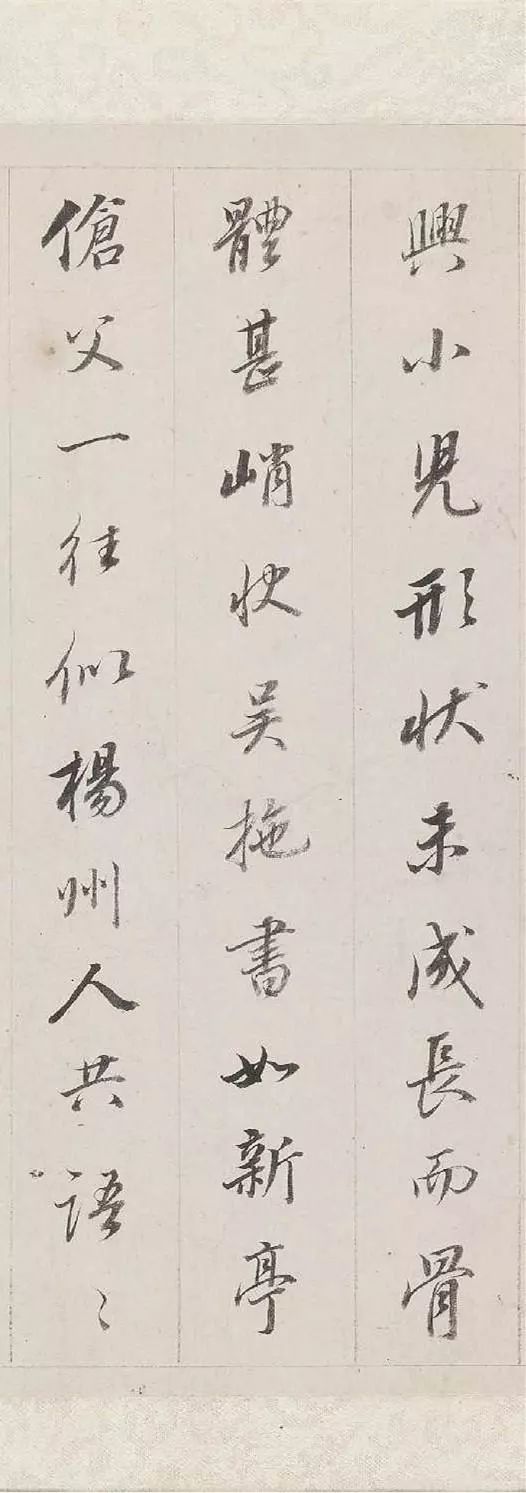 興小兒形状未成長而骨
體甚峭快吴拖書如新亭
傖父一往似楊州人共語〻